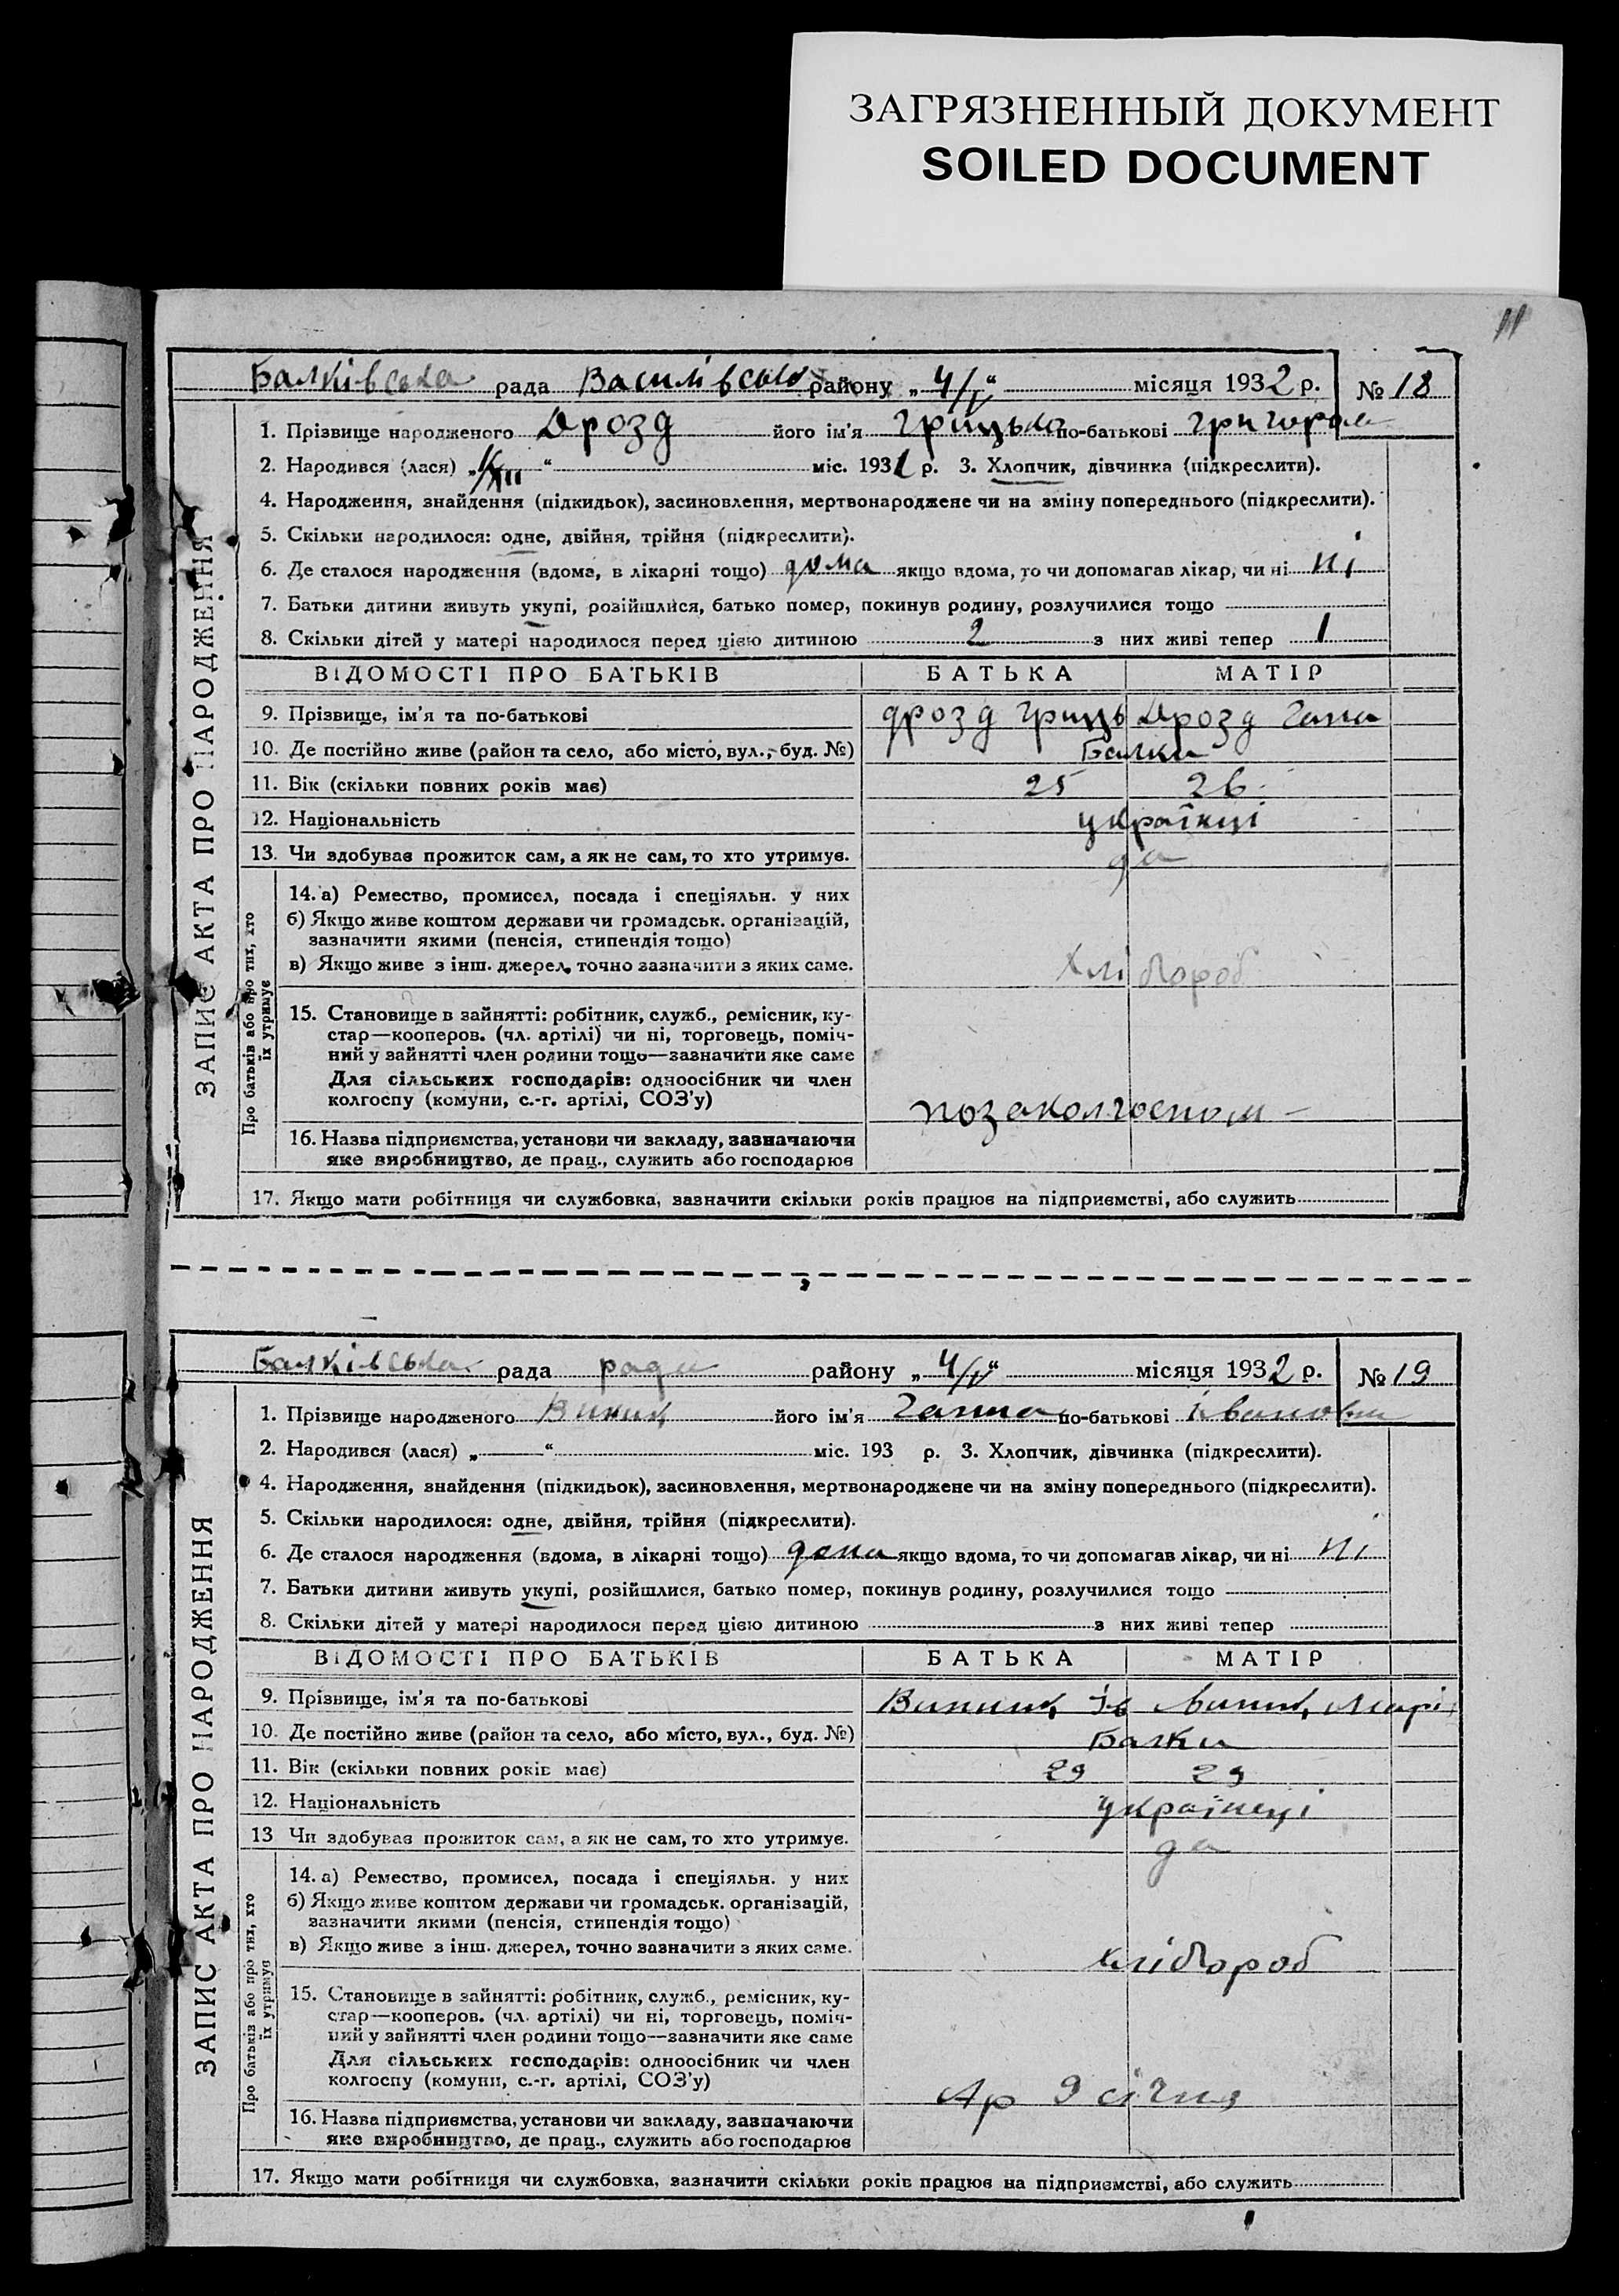 ЗАГРЯЗНЕННЫЙ ДОКУМЕНТ
SOILED DOCUMENT
11
Балківська рада Василівсько району „4/IV“ місяця 1932 р. № 18
ЗАПИС АКТА ПРО НАРОДЖЕННЯ
1. Прізвище народженого Дрозд його ім'я Грицько по-батькові Григоров
2. Народився (лася) „ “ міс. 1931 р. 3. Хлопчик, дівчинка (підкреслити).
4. Народження, знайдення (підкидьок), засиновлення, мертвонароджене чи на зміну попереднього (підкреслити).
5. Скільки народилося: одне, двійня, трійня (підкреслити).
6. Де сталося народження (вдома, в лікарні тощо) дома якщо вдома, то чи допомагав лікар, чи ні ні
7. Батьки дитини живуть укупі, розійшлися, батько помер, покинув родину, розлучилися тощо
8. Скільки дітей у матері народилося перед цією дитиною 2 з них живі тепер 1
ВІДОМОСТІ ПРО БАТЬКІВ БАТЬКА МАТІР
9. Прізвище, ім'я та по-батькові Дрозд Гриць Дрозд Гана
10. Де постійно живе (район та село, або місто, вул., буд. №) Балки
11. Вік (скільки повних років має) 25 26
12. Національність українці
13. Чи здобуває прожиток сам, а як не сам, то хто утримує. да
Про батьків або про тих, хто їх утримує
14. а) Ремество, промисел, посада і спеціяльн. у них
б) Якщо живе коштом держави чи громадськ. організацій,
зазначити якими (пенсія, стипендія тощо)
в) Якщо живе з інш. джерел, точно зазначити з яких саме. хлібороб
15. Становище в зайнятті: робітник, служб., ремісник, ку-
стар—кооперов. (чл. артілі) чи ні, торговець, поміч-
ний у зайнятті член родини тощо—зазначити яке саме
Для сільських господарів: одноосібник чи член
колгоспу (комуни, с.-г. артілі, СОЗ'у) позаколгоспом
16. Назва підприємства, установи чи закладу, зазначаючи
яке виробництво, де прац., служить або господарює
17. Якщо мати робітниця чи службовка, зазначити скільки років працює на підприємстві, або служить
Балківська рада ради району „4/IV“ місяця 1932 р. № 19
ЗАПИС АКТА ПРО НАРОДЖЕННЯ
1. Прізвище народженого його ім'я Ганна по-батькові Івановна
2. Народився (лася) „ “ міс. 193 р. 3. Хлопчик, дівчинка (підкреслити).
4. Народження, знайдення (підкидьок), засиновлення, мертвонароджене чи на зміну попереднього (підкреслити).
5. Скільки народилося: одне, двійня, трійня (підкреслити).
6. Де сталося народження (вдома, в лікарні тощо) дома якщо вдома, то чи допомагав лікар, чи ні ні
7. Батьки дитини живуть укупі, розійшлися, батько помер, покинув родину, розлучилися тощо
8. Скільки дітей у матері народилося перед цією дитиною з них живі тепер
ВІДОМОСТІ ПРО БАТЬКІВ БАТЬКА МАТІР
9. Прізвище, ім'я та по-батькові Ів Марі
10. Де постійно живе (район та село, або місто, вул., буд. №) Балки
11. Вік (скільки повних років має) 29 29
12. Національність українці
13 Чи здобуває прожиток сам, а як не сам, то хто утримує. да
Про батьків або про тих, хто їх утримує
14. а) Ремество, промисел, посада і спеціяльн. у них
б) Якщо живе коштом держави чи громадськ. організацій,
зазначити якими (пенсія, стипендія тощо)
в) Якщо живе з інш. джерел, точно зазначити з яких саме. хлібороб
15. Становище в зайнятті: робітник, служб., ремісник, ку-
стар—кооперов. (чл. артілі) чи ні, торговець, поміч-
ний у зайнятті член родини тощо—зазначити яке саме
Для сільських господарів: одноосібник чи член
колгоспу (комуни, с.-г. артілі, СОЗ'у) Ар 9 січня
16. Назва підприємства, установи чи закладу, зазначаючи
яке виробництво, де прац., служить або господарює
17. Якщо мати робітниця чи службовка, зазначити скільки років працює на підприємстві, або служить